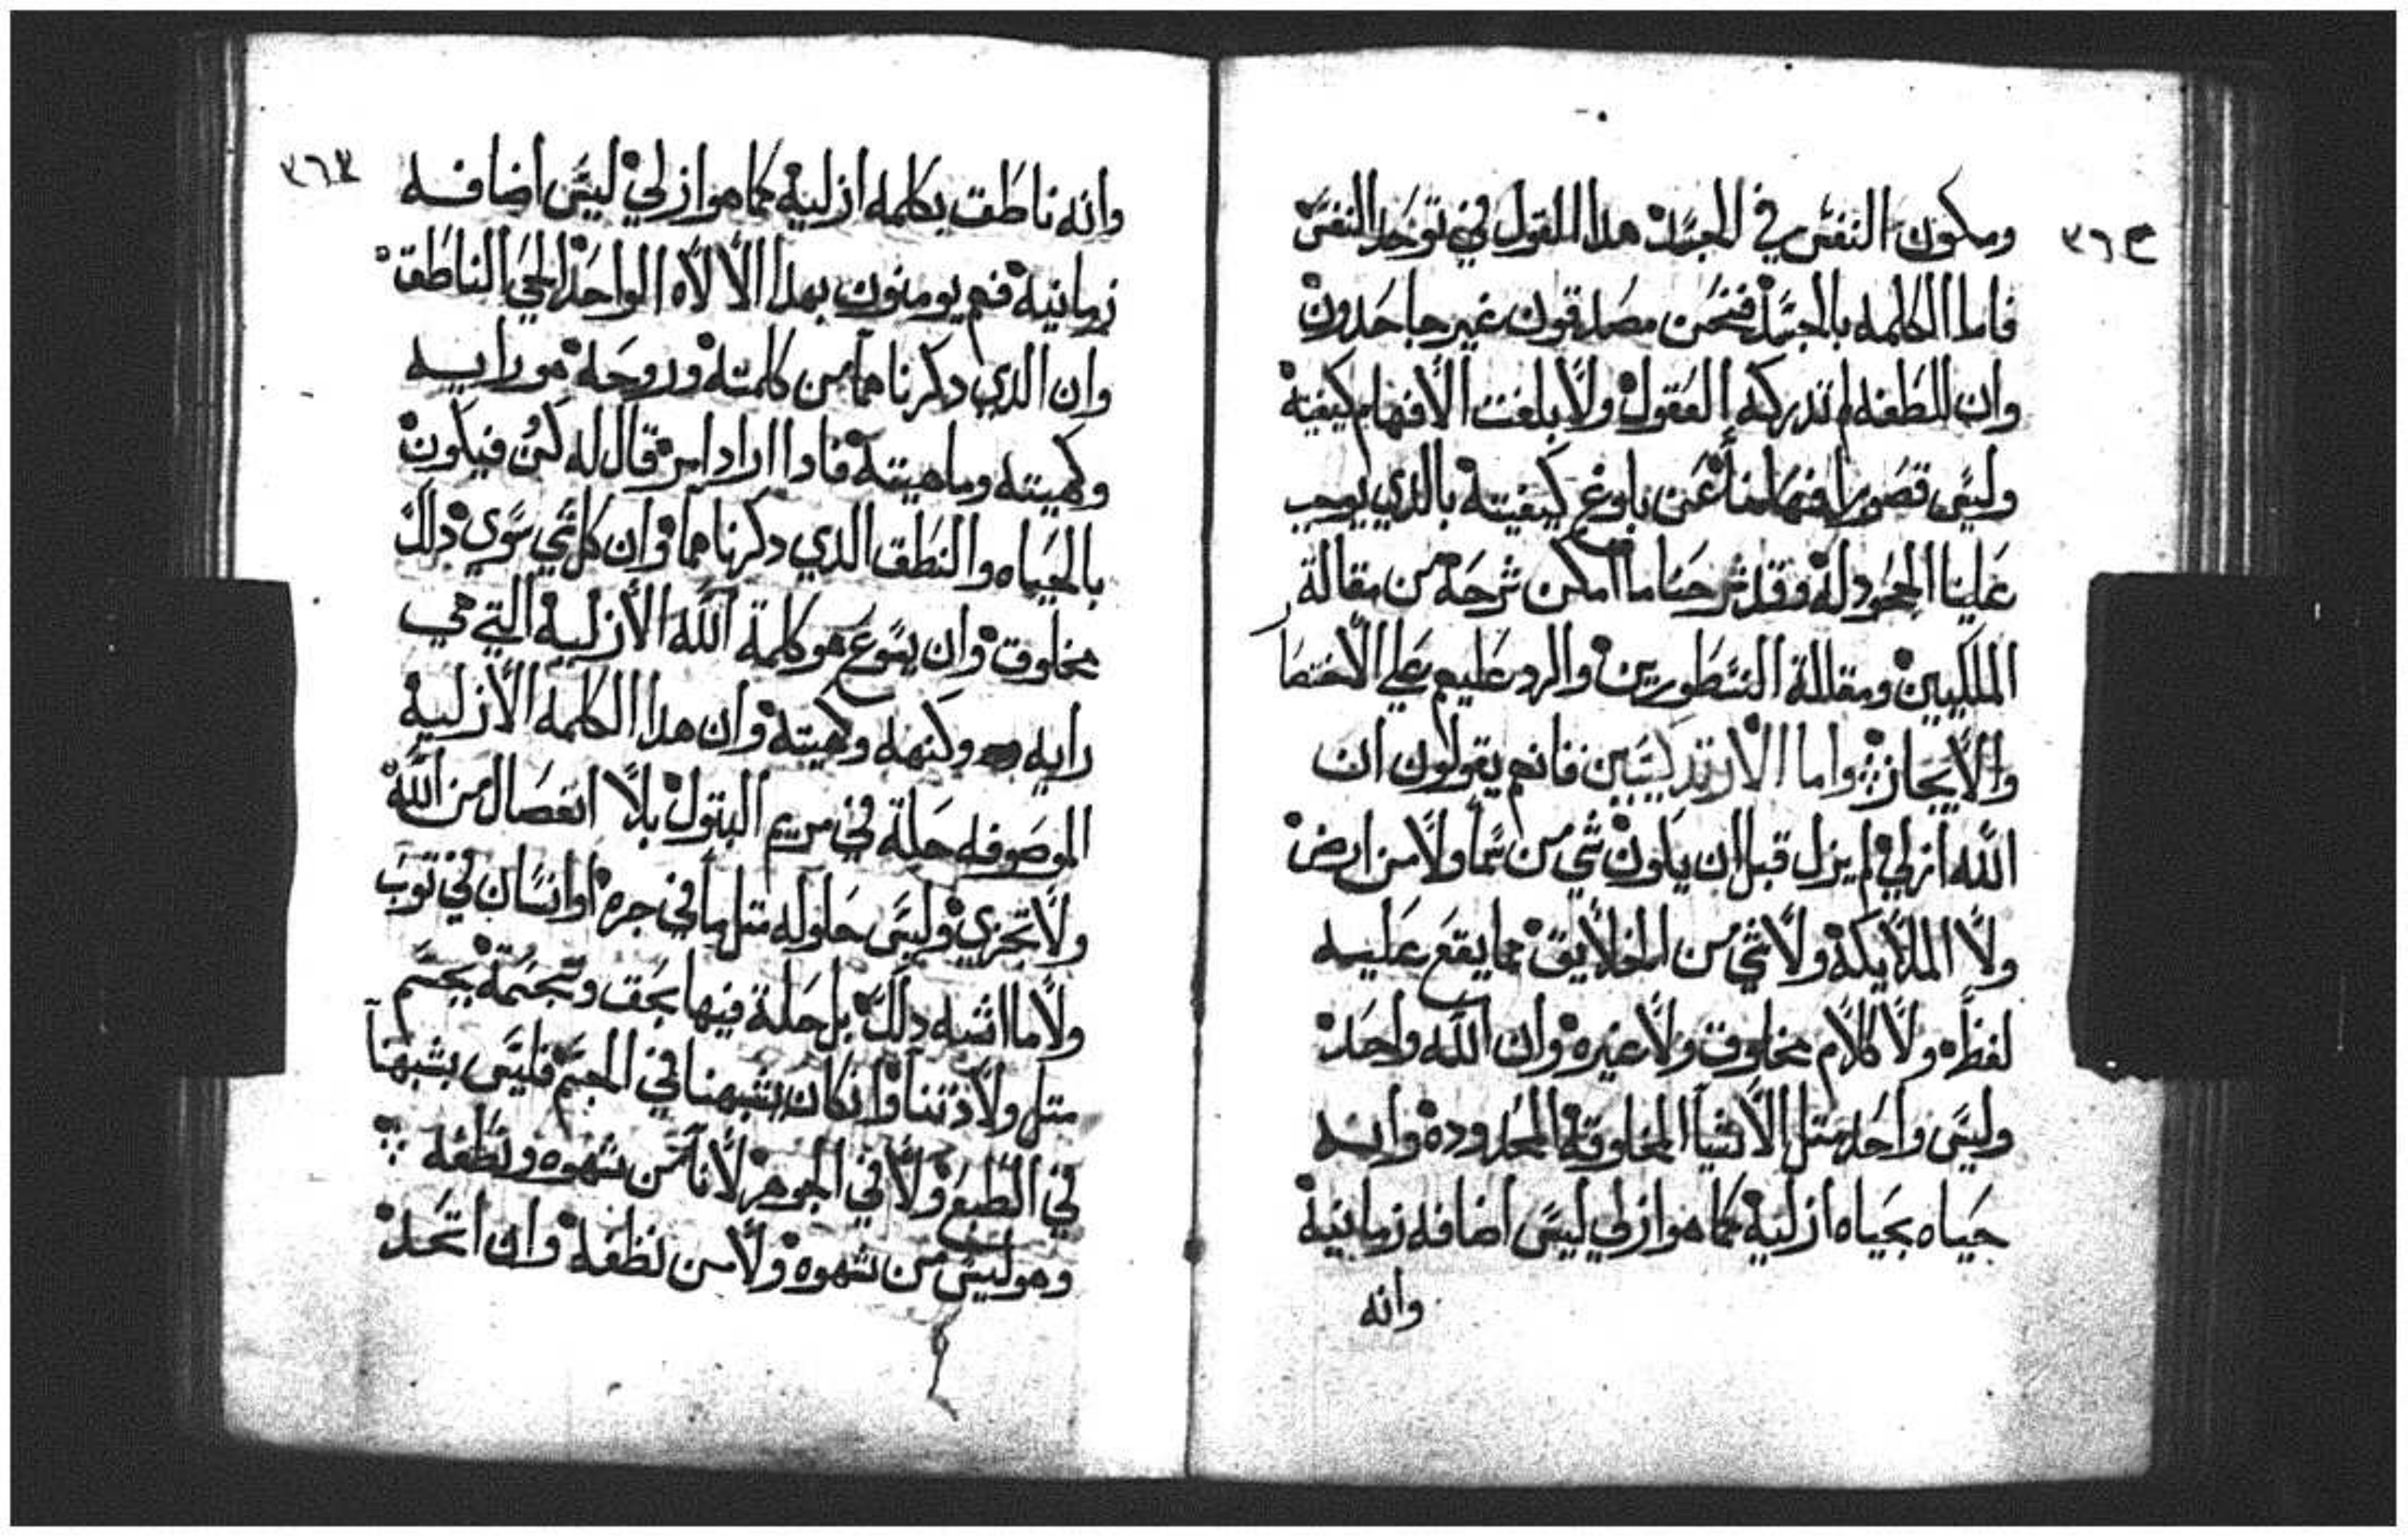 ومكون النفس في الجسد هدا القول في توحد النفس
فاما الكلمه بالجسد فنحن مصدقون غير جاحدون
وان للطفه لم تدركه العقول ولا بلغت الافهام كيفيته
وليس قصور افهامنا عن بلوغ كيفيته بالدي يوجب
علينا الجحود له وقد شرحنا ما امكن شرحه من مقالة
الملكيين ومقالة النسطوريين والرد عليهم علي الاختصا
والايجاز واما الارتدكسيين فانهم يقولون ان
الله ازلي لم يزل قبل ان يكون شي من سما ولا من ارض
ولا الملايكه ولا شي من الخلايق مما يقع عليه
لفظه ولا كلام مخلوق ولا غيره وان الله واحد
وليس واحد متل الاشيا المخلوقه المحدوده وانه
حياه بحياه ازليه كما هو ازلي ليس اضافه زمانيه
وانه
٣٦٣
وانه ناطق بكلمه ازليه كما هو ازلي ليس اضافه
زمانيه فهم يومنون بهدا الالاه الواحد الحي الناطق
وان الدي دكرناهما من كلمته وروحه هو رايه
وكهيته وماهيته فادا اراد امر قال له كن فيكون
بالحياه والنطق الدي دكرناهما وان كل شي سوي دلك
مخلوق وان يسوع هو كلمة الله الازليه التي هي
رايه وكنهه وكهيته وان هدا الكلمه الازليه
الموصوفه حلة في مريم البتول بلا انفصال من الله
ولا تجزي وليس حلوله متل ما في جره او انسان في توب
ولا ما اشبه دلك بل حلة فيها بحق وتجسمة بجسم
متل ولادتنا وان كان يشبهنا في الجسم فليس يشبهنا
في الطبع ولا في الجوهر لانا من شهوه ونطفه
وهو ليس من شهوه ولا من نطفه وان اتحد